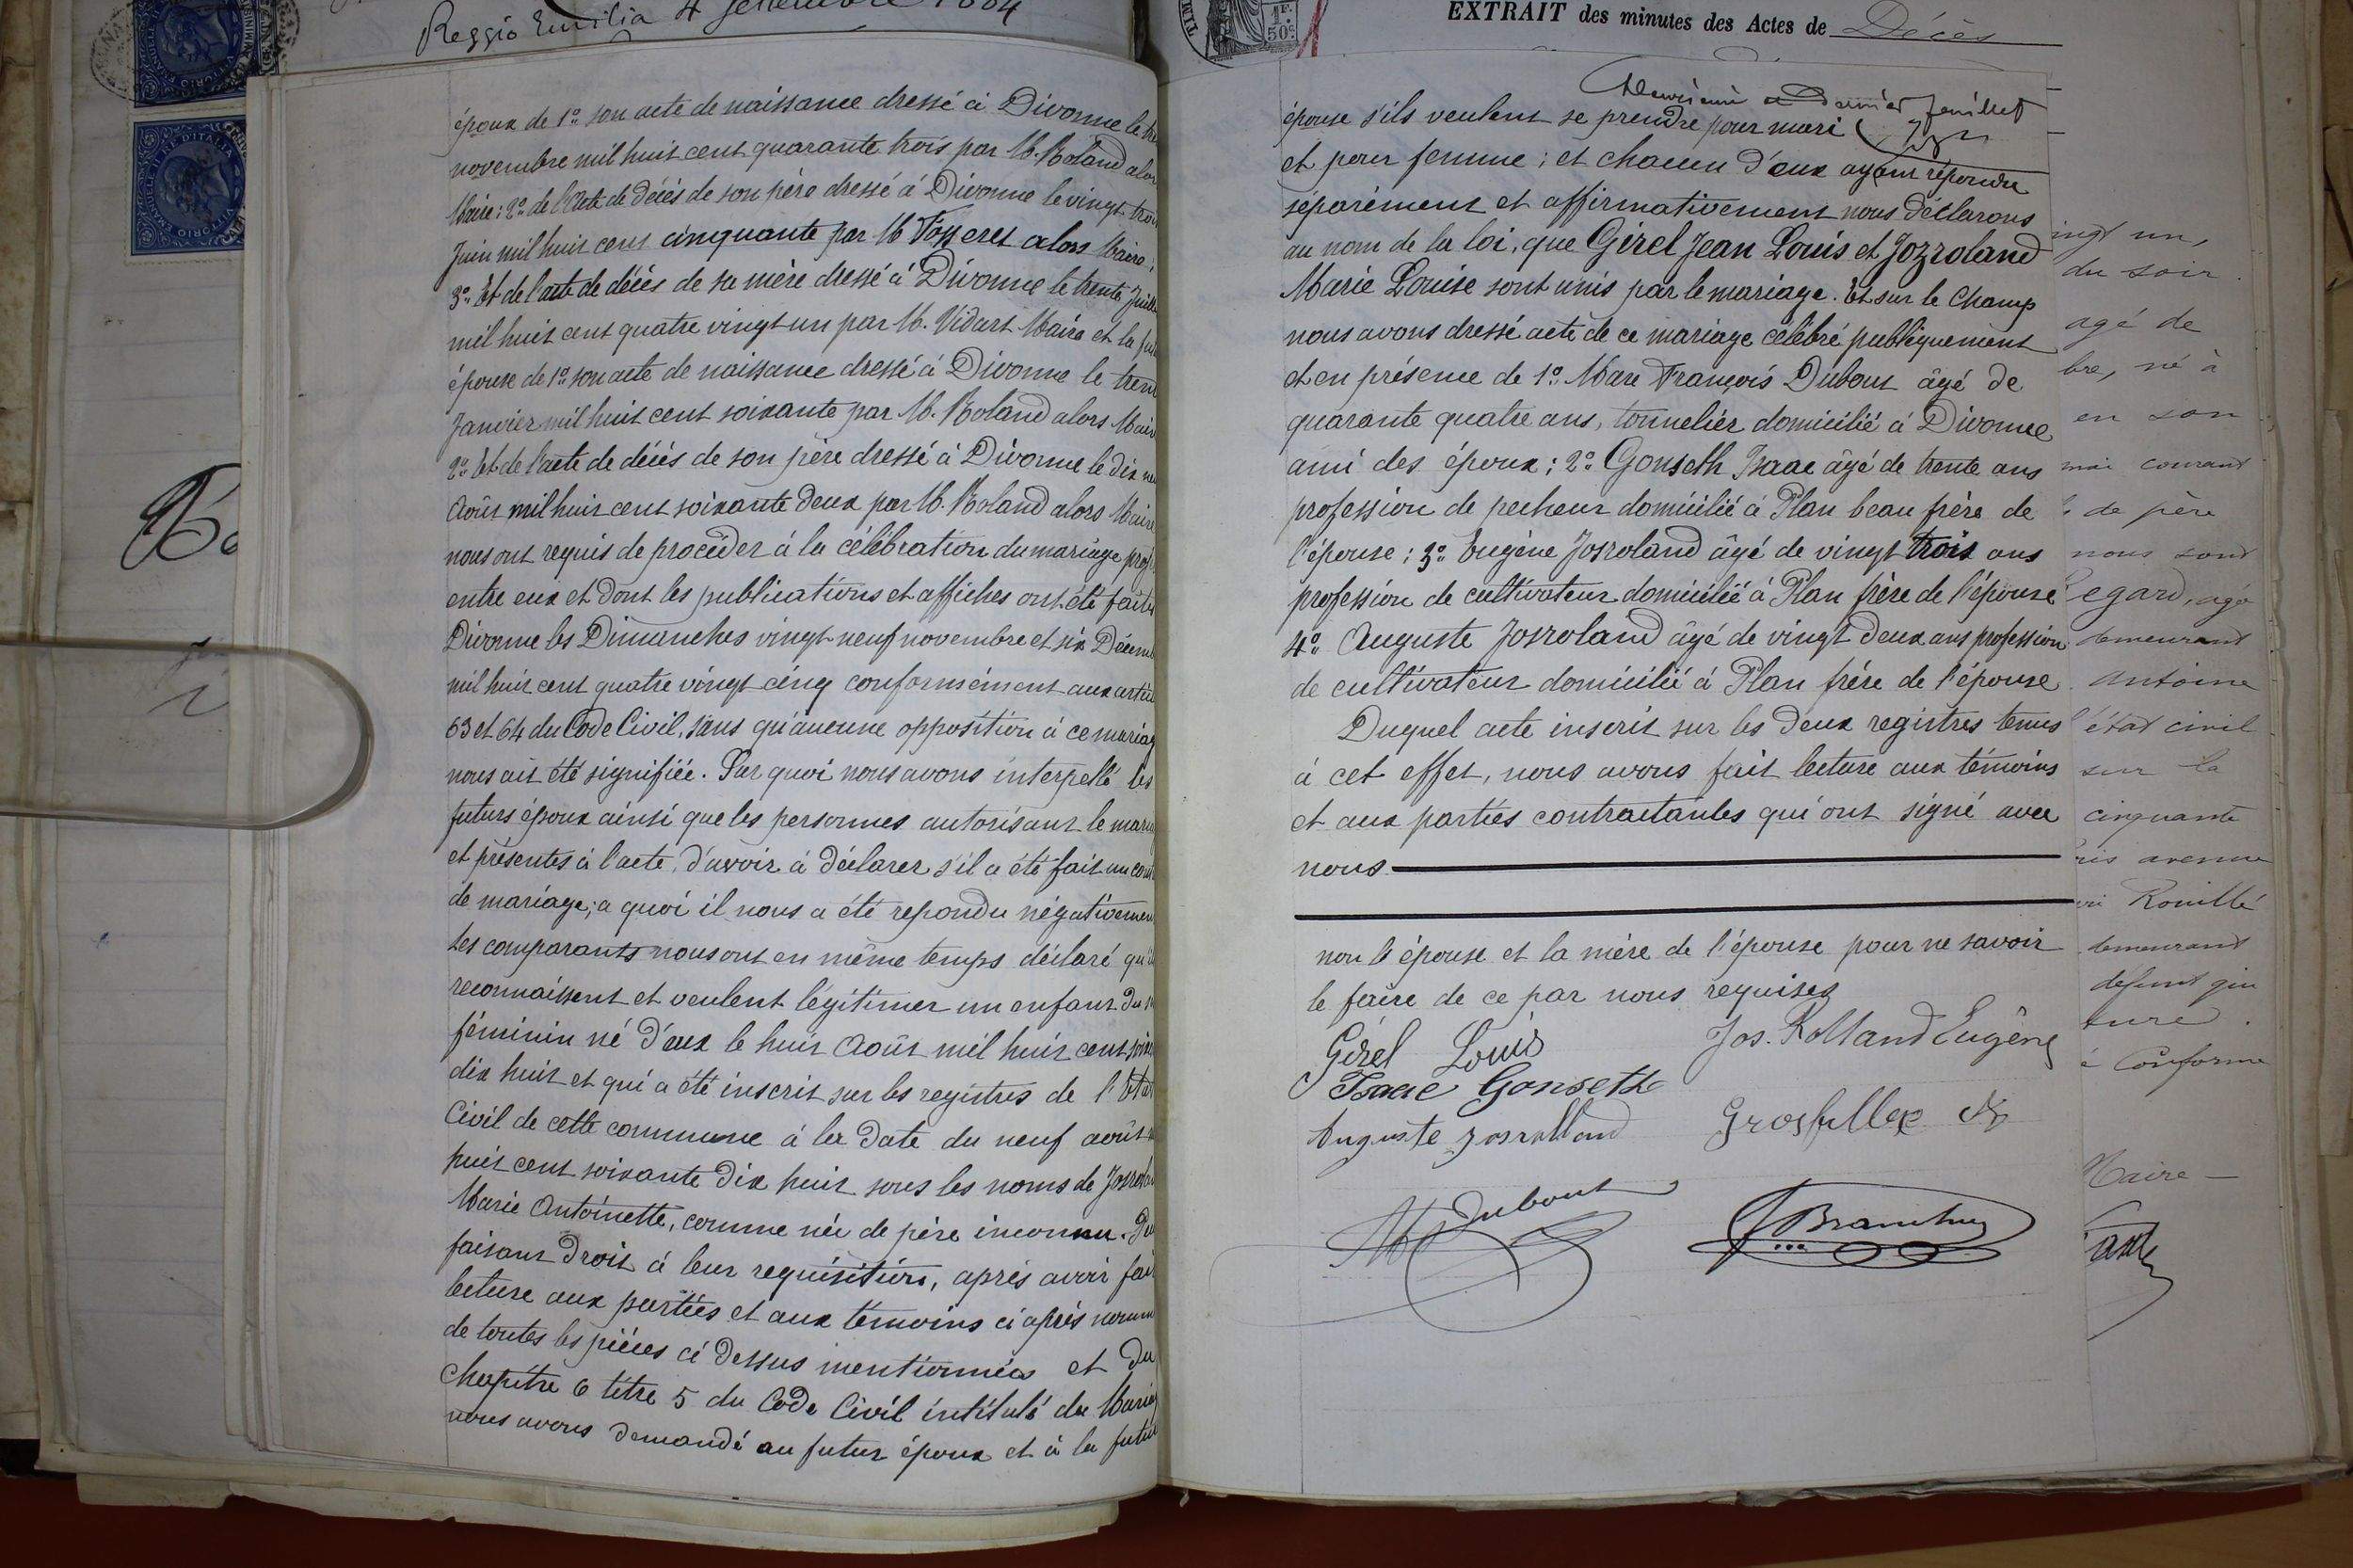 Reggio Emilia 4 settembre 1884
époux de 1° son acte de naissance dressé à Divonne le
novembre mil huit cent quarante trois par M. Roland alors
Maire; 2° de l'acte de décès de son père dressé à Divonne le vingt trois
Juin mil huit cent cinquante par M alors Maire;
3° Et de l'acte de décès de sa mère dressé à Divonne le trente Juillet
mil huit cent quatre vingt un par M. Vidart Maire et la
épouse de 1° son acte de naissance dressé à Divonne le
Janvier mil huit cent soixante par M. Roland alors Maire
2° Et de l'acte de décès de son père dressé à Divonne le dix
Août mil huit cent soixante deux par M. Roland alors Maire
nous ont requis de procéder à la célébration du mariage proj
entre eux et dont les publications et affiches ont été faites
Divonne les Dimanches vingt neuf novembre et six Décem
mil huit cent quatre vingt cinq conformément aux articl
63 et 64 du Code Civil, sans qu'aucune opposition à ce mariag
nous ait été signifiée. Sur quoi nous avons interpellé les
futurs époux ainsi que les personnes autorisant le maria
et présentes à l'acte, d'avoir à déclarer s'il a été fait un cont
de mariage; a quoi il nous a été repondu négativemen
Les comparants nous ont en même temps déclaré qu'il
reconnaissent et veulent légitimer un enfant du
féminin né d'eux le huit Août mil huit cent soixa
dix huit et qui a été inscrit sur les registres de l'Etat
Civil de cette commune à la date du neuf août
huit cent soixante dix huit sous les noms de Josrola
Marie Antoinette, comme née de père inconnu.
faisant droit à leur requisition, après avoir fait
lecture aux parties et aux témoins ci après nomm
de toutes les pièces ci dessus mentionnées et du
Chapitre 6 titre 5 du Code Civil intitulé du Mariag
nous avons demandé au futur époux et à la futur
EXTRAIT des minutes des Actes de Décès
Deuxième et dernier feuillet
épouse s'ils veulent se prendre pour mari
et pour femme; et chacun d'eux ayant répondu
séparément et affirmativement nous déclarons
au nom de la loi, que Girel Jean Louis et Jozroland
Marie Louise sont unis par le mariage. Et sur le Champ
nous avons dressé acte de ce mariage célébré publiquement
et en présence de 1° Marc François Dubout âgé de
quarante quatre ans, tonnelier domicilié à Divonne
ami des époux; 2° Gonseth Isaac âgé de trente ans
profession de pecheur domicilié à Plan beau frère de
l'épouse; 3° Eugène Josroland âgé de vingt trois ans
profession de cultivateur domicilié à Plan frère de l'épouse
4° Auguste Josroland âgé de vingt deux ans profession
de cultivateur domicilié à Plan frère de l'épouse.
Duquel acte inscrit sur les deux registres tenus
à cet effet, nous avons fait lecture aux témoins
et aux parties contractantes qui ont signé avec
nous
non l'épouse et la mère de l'épouse pour ne savoir
le faire de ce par nous requises
Girel Louis
Jos. Rolland Eugène
Isaac Gonseth
Auguste Josrolland
Grosfillex
Dubout
ingt un,
du soir.
agé de
bre, né à
en son
mai courant
de père
nous sont
egard, agé
demeurant
antoine
l'état civil
sur la
cinquante
ris avenue
Rouillé
demeurant
defunt qui
ture.
Conforme
Maire